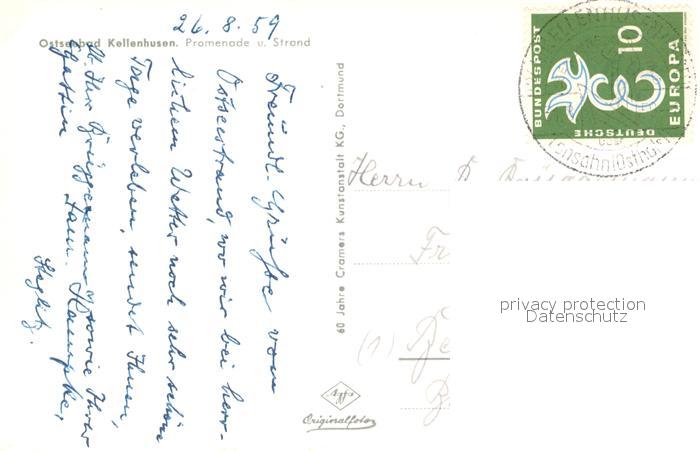 26.8.59
Ostseebad Kellenhusen. Promenade u. Strand
Freundl. Grüße vom
Ostseestrand, wo wir bei herr-
lichem Wetter noch sehr schöne
Tage verleben, sendet Ihnen,
lb. Herr Brüggemann, sowie Ihrer
Gattin Fam.
Steglitz.
60 Jahre Cramers Kunstanstalt KG., Dortmund
Agfa
Originalfoto
DEUTSCHE
BUNDESPOST
10
EUROPA
Herrn
(1) Be
privacy protection
Datenschutz